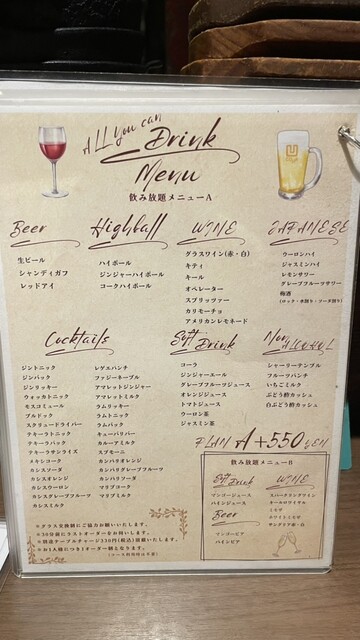 All you can
Drink
Menu
飲み放題メニューA
Beer
生ビール
シャンディガフ
レッドアイ
Highball
ハイボール
ジンジャーハイボール
コークハイボール
WINE
グラスワイン(赤・白)
キティ
キール
オペレーター
スプリッツァー
カリモーチョ
アメリカンレモネード
JAPANESE
ウーロンハイ
ジャスミンハイ
レモンサワー
グレープフルーツサワー
梅酒
(ロック・水割り・ソーダ割り)
Cocktails
ジントニック
ジンバック
ジンリッキー
ウォッカトニック
モスコミュール
ブルドック
スクリュードライバー
テキーラトニック
テキーラバック
テキーラサンライズ
メキシコーク
カシスソーダ
カシスオレンジ
カシスウーロン
カシスグレープフルーツ
カシスミルク
レゲエパンチ
ファジーネーブル
アマレットジンジャー
アマレットミルク
ラムリッキー
ラムトニック
ラムバック
キューバリバー
カルーアミルク
スプモーニ
カンパリオレンジ
カンパリグレープフルーツ
カンパリソーダ
マリブオレンジ
マリブコーク
マリブミルク
Soft Drink
コーラ
ジンジャーエール
グレープフルーツジュース
オレンジジュース
トマトジュース
ウーロン茶
ジャスミン茶
Non Alcohol
シャーリーテンプル
フルーツパンチ
いちごミルク
ぶどう酢カッシュ
白ぶどう酢カッシュ
PLAN A +550 YEN
飲み放題メニューB
Soft Drink
マンゴージュース
パインジュース
Beer
マンゴービア
パインビア
WINE
スパークリングワイン
キールロワイヤル
ミモザ
ホワイトミモザ
サングリア赤・白
※グラス交換制にご協力お願いいたします。
※30分前にラストオーダーをお伺いします。
※別途テーブルチャージ330円(税込)頂戴いたします。
※お1人様につき1オーダー制となります。